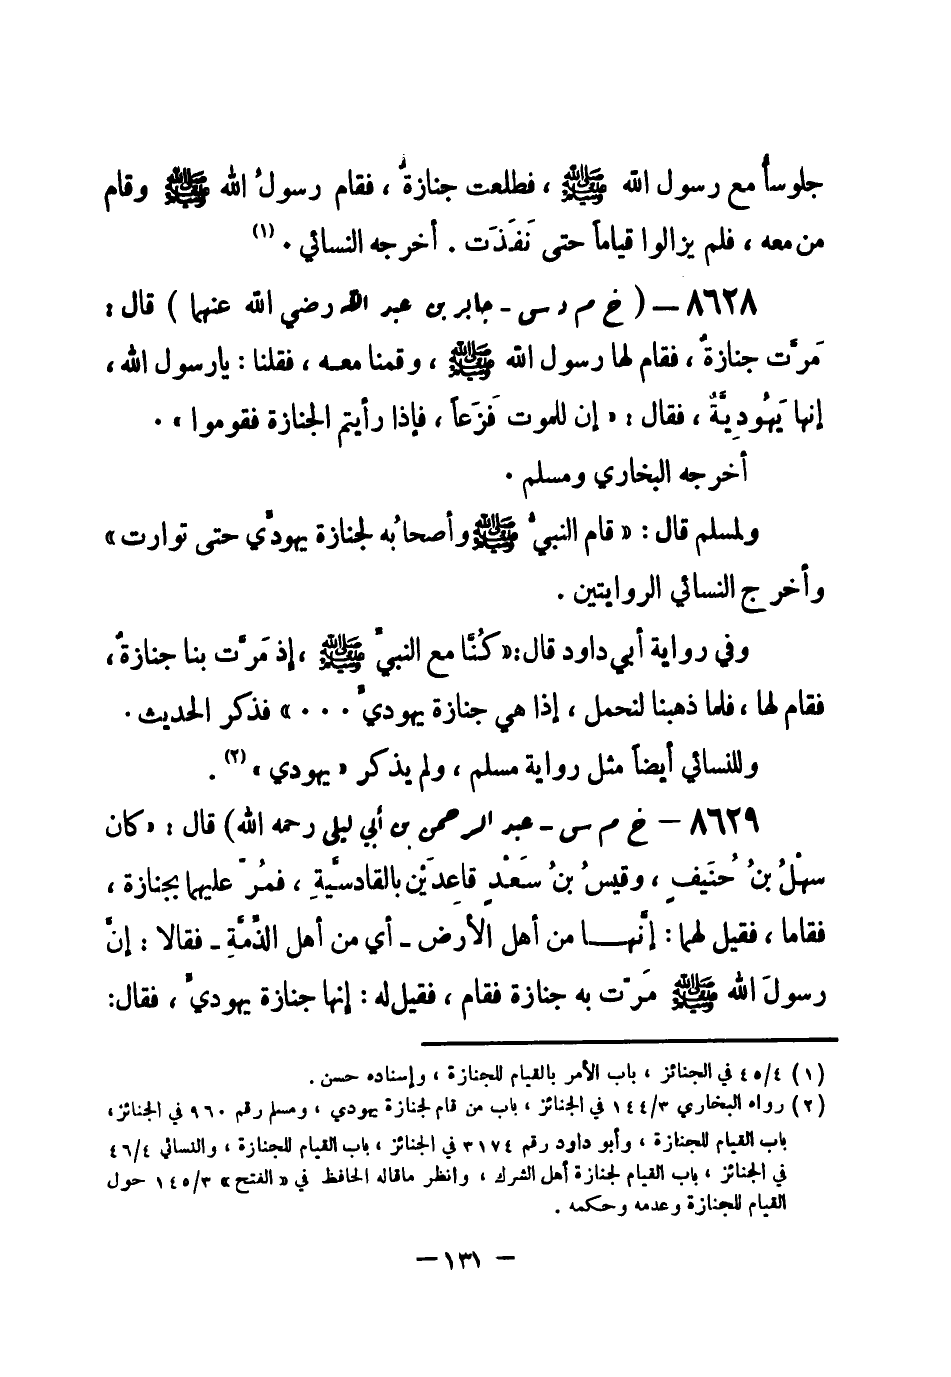 جلوساً مع رسول الله ﷺ ، فطلعت جنازةٌ ، فقام رسولُ الله ﷺ وقام
من معه ، فلم يزالوا قياماً حتى نَفَذَت . أخرجه النسائي . (١)
٨٦٢٨ – ( خ م د س - جابر بن عبد الله رضي الله عنهما ) قال :
مَرَّت جنازةٌ ، فقام لها رسول الله ﷺ ، وقمنا معـه ، فقلنا : يارسول الله ،
إنها يَهُودِيَّةٌ ، فقال : « إن للموت فَزَعاً ، فإذا رأيتم الجنازة فقوموا » .
أخرجه البخاري ومسلم .
ولمسلم قال : « قام النبيُّ ﷺ وأصحابُه لجنازة يهوديٍّ حتى توارت »
وأخرج النسائي الروايتين .
وفي رواية أبي داود قال : « كُنَّا مع النبيِّ ﷺ ، إذ مَرَّت بنا جنازةٌ ،
فقام لها ، فلما ذهبنا لنحمل ، إذا هي جنازة يهوديٍّ . . . » فذكر الحديث .
وللنسائي أيضاً مثل رواية مسلم ، ولم يذكر « يهودي » (٢) .
٨٦٢٩ – خ م س - عبد الرحمن بن أبي ليلى رحمه الله) قال : « كان
سهْلُ بنُ حُنَيفٍ ، وقيسُ بنُ سَعَدٍ قاعِدَيْن بالقادسيَّةِ ، فمُرَّ عليهما بجنازة ،
فقاما ، فقيل لهما : إنَّهـــا من أهل الأرض - أي من أهل الذِّمَّةِ - فقالا : إنَّ
رسولَ الله ﷺ مَرَّت به جنازة فقام ، فقيل له : إنها جنازة يهوديٍّ ، فقال:
(١) ٤٥/٤ في الجنائز ، باب الأمر بالقيام للجنازة ، وإسناده حسن .
(٢) رواه البخاري ١٤٤/٣ في الجنائز ، باب من قام لجنازة يهودي ، ومسلم رقم ٩٦٠ في الجنائز ،
باب القيام للجنازة ، وأبو داود رقم ٣١٧٤ في الجنائز ، باب القيام للجنازة ، والنسائي ٤٦/٤
في الجنائز ، باب القيام لجنازة أهل الشرك ، وانظر ماقاله الحافظ في « الفتح » ١٤٥/٣ حول
القيام للجنازة وعدمه وحكمه .
– ١٣١ –